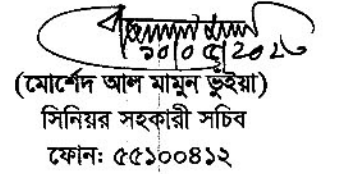 (মোর্শেদ আল মামুন ভুইয়া)
সিনিয়র সহকারী সচিব
ফোন: ৫৫১০০৪১২